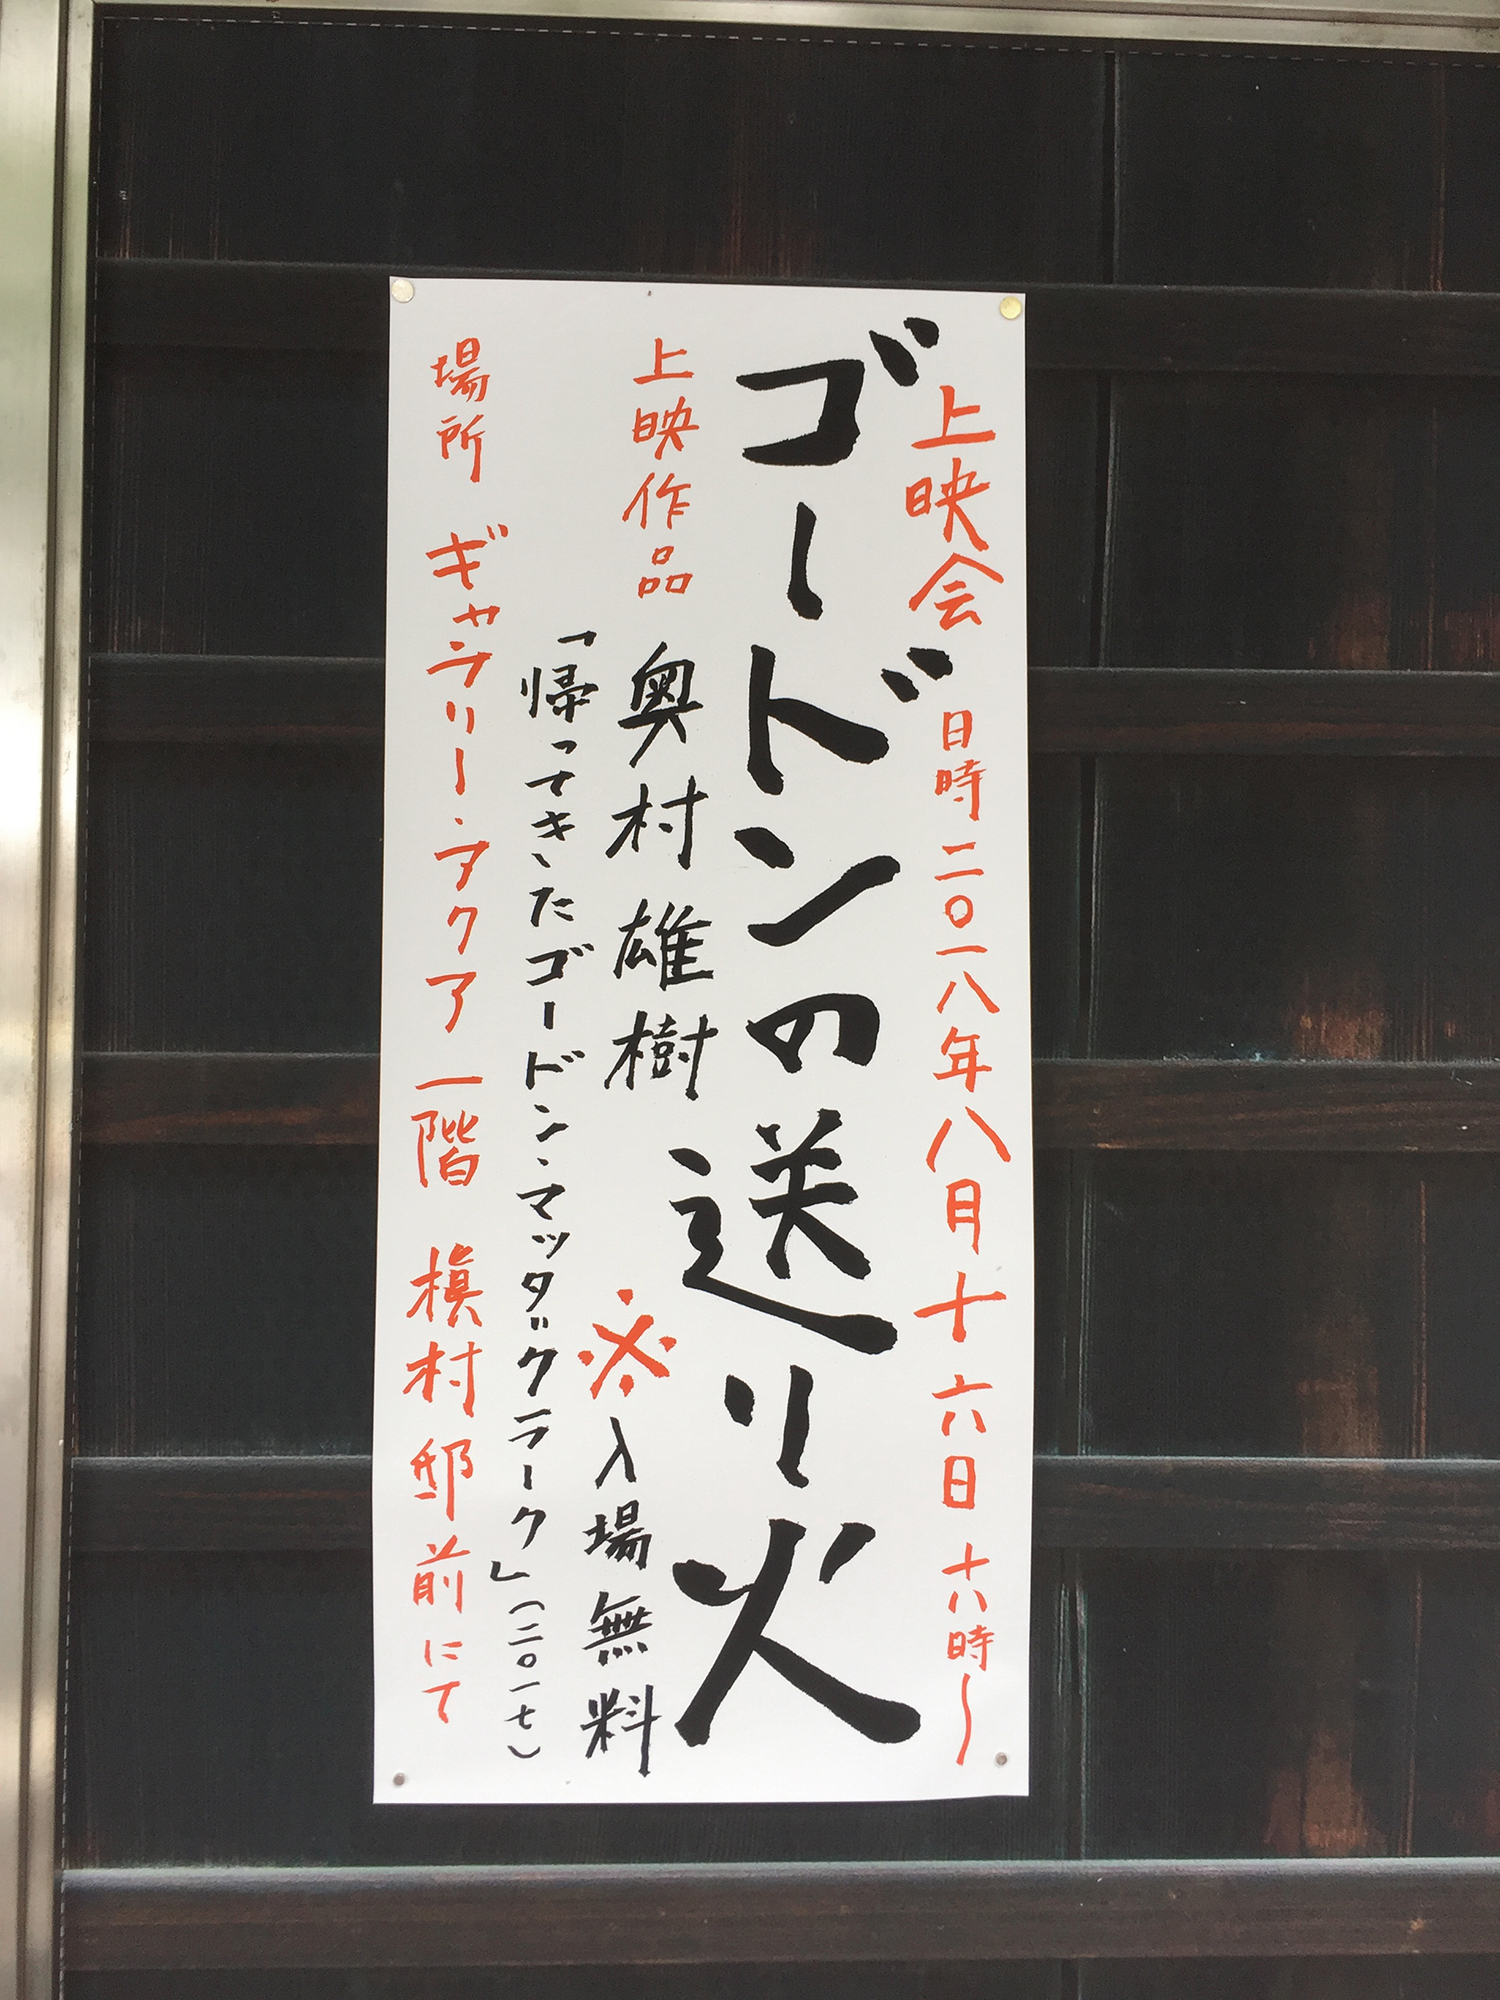 上映会 日時 二〇一八年八月十六日 十八時〜
ゴードンの送り火
上映作品 奥村雄樹
「帰ってきたゴードン・マッタ＝クラーク」(二〇一七)
※入場無料
場所 ギャラリー・アクア 一階 槇村邸前にて